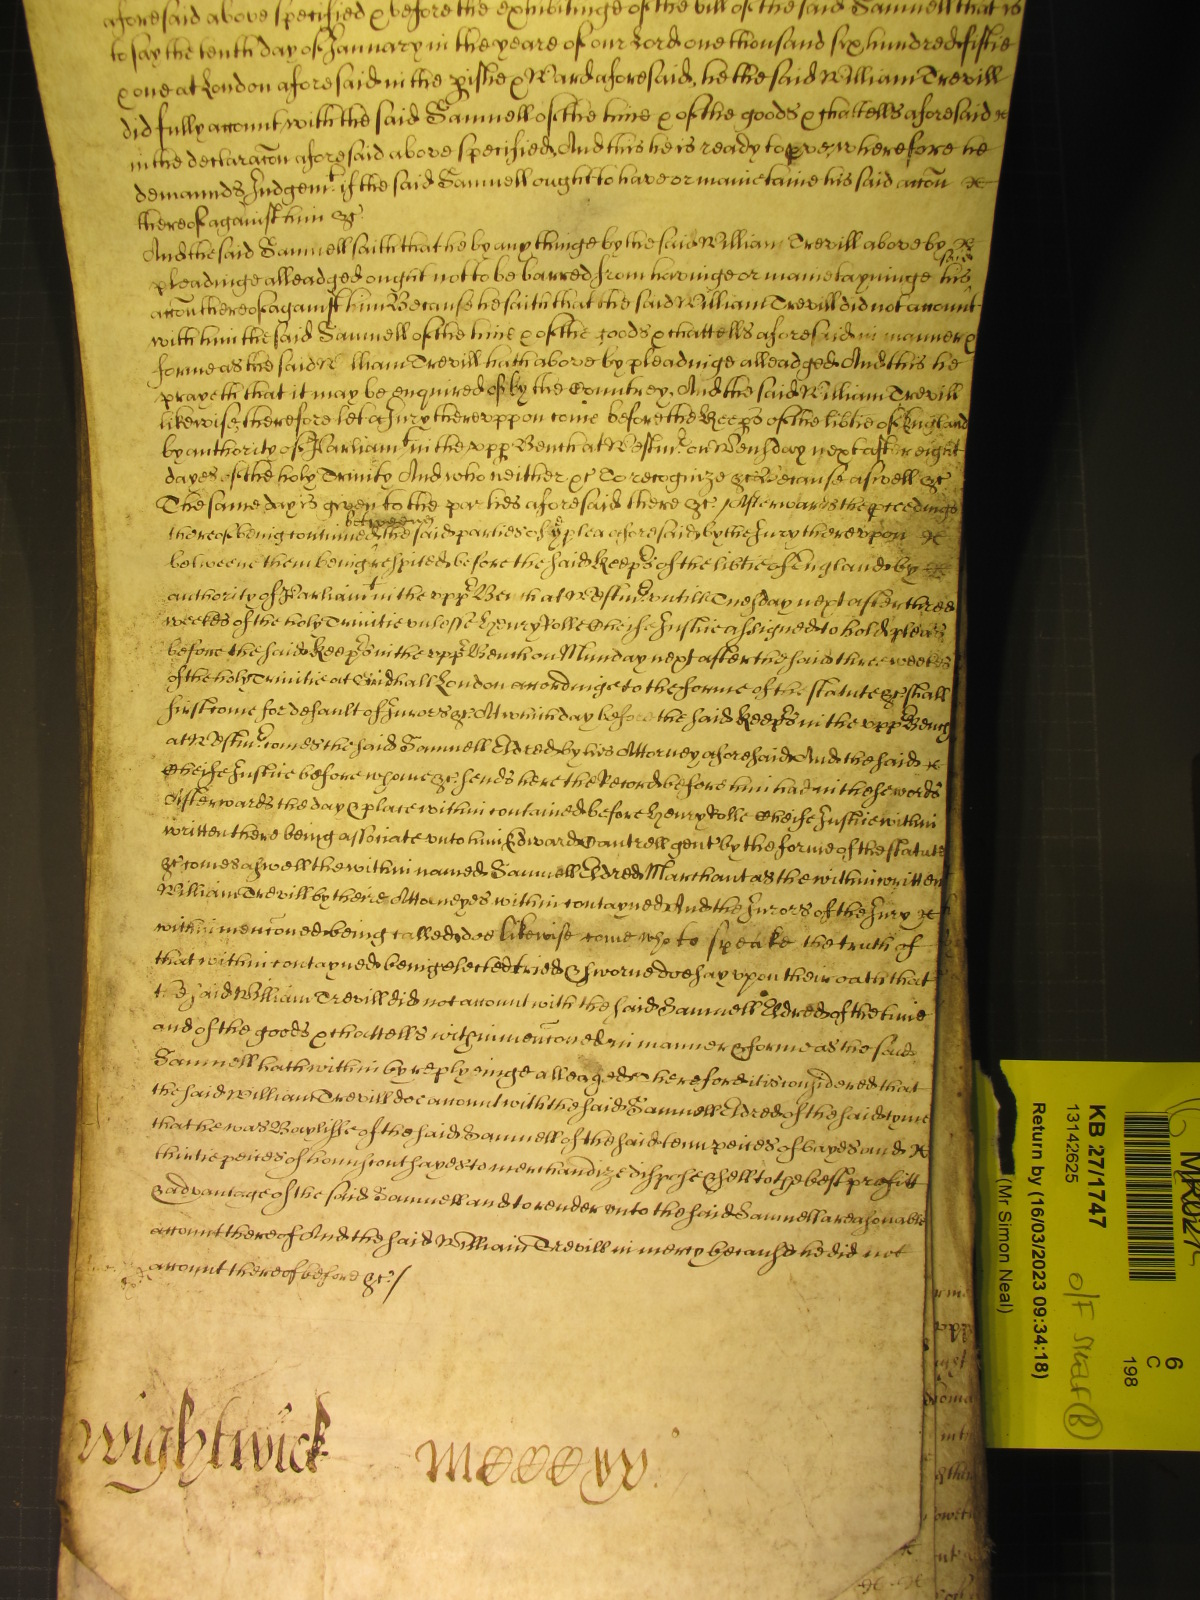 aforesaid above specified & before the exhibitinge of the bill of the said Samuell that is
to say the tenth day of January in the yeare of our Lord one thousand six hundred fiftie
& one at London aforesaid in the pishe & Ward aforesaid, he the said William Trevill
did fully accompt with the said Samuell of the time & of the goods & chattells aforesaid
in the declaracon aforesaid above specified, And this he is ready to prve, wherefore he
demaunds Judgemt if the said Samuell ought to have or mainetaine his said accon
thereof against him &c
And the said Samuell saith that he by any thinge by the said William Trevill above by
pleadinge alleadged ought not to be barred from havinge or mainetayninge his said
accon thereof against him Because he saith that the said William Trevill did not account
with him the said Samuell of the time & of the goods & chattells aforesaid in manner &
forme as the said William Trevill hath above by pleadinge alleadged And this he
prayeth that it may be enquired of by the Countrey, And the said William Trevill
likewise, therefore let a Jury thereuppon come before the Keeps of the libtie of England
by authority of Parliamt in the uppr Bench at Westmr on Wensday next after eight
dayes of the holy Trinity And who neither &c To recognize &c Because aswell &c
The same day is given to the parties aforesaid there &c / Afterwards the pceedings
thereof being continued betweene the said parties of ye plea aforesaid by the Jury thereupon
betweene them being respited before the said Keeps of the libtie of England by
authority of Parliamt in the uppr Bench at Westmr untill Tuesday next after three
weekes of the holy Trinitie unlesse Henry Rolle Cheife Justice assigned to hold pleas
before the said Keeps in the uppr Bench on Munday next after the said three weekes
of the holy Trinitie at Guidhall London accordinge to the forme of the statute &c shall
first come for default of Jurors &c. At which day before the said Keeps in the uppr Bench
at Westmr comes the said Samuell Eldred by his Attorney aforesaid And the said
Cheife Justice before whome &c sends here the Record before him had in these words
Afterwards the day & place within contained before Henry Rolle Cheife Justice within
written there being associate unto him Edward Cantrell gent by the forme of the statute
&c comes aswell the within named Samuell Eldred Marchant as the within written
William Trevill by theire Attorneyes within contayned And the Jurors of the Jury
within mencioned being called doe likewise come who to speake the truth of
that within contayned being elected tried & sworne doe say upon their oath that
the said William Trevill did not account with the said Samuell Eldred of the time
and of the goods & chattells within mencioned in manner & forme as the said
Samuell hath within by replyeinge alleaged Therefore it is considered that
the said William Trevill doe account with the said Samuell Eldred of the said tyme
that he was Bayliffe of the said Samuell of the said tenn peices of bayes and
thirtie peices of hounscont sayes to merchandize dispose & sell to the best profitt
& advantage of the said Samuell and to render unto the said Samuell a reasonable
account thereof And the said William Trevill in mercy because he did not
account thereof before &c /
Wightwick
KB 27/1747
13142625
Return by (16/03/2023 09:34:18)
(Mr Simon Neal)
6
C
198